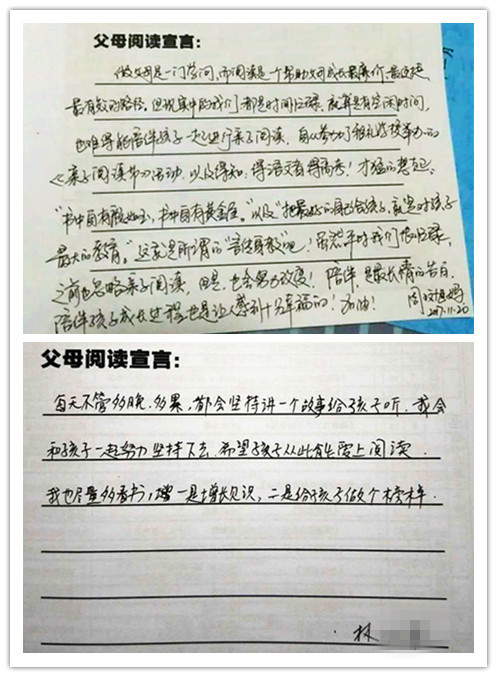 父母阅读宣言:
做父母是一门学问,而阅读是一个帮助父母成长最廉价、最便捷、
最有效的路径。但现实中的我们都是时间忙碌,就算是有空闲时间,
也难得能陪伴孩子一起进行亲子阅读,自从参加了祖礼学校举办的
《亲子阅读节》活动,以及得知:得语文者得高考!才猛的想起:
“书中自有颜如玉,书中自有黄金屋。”以及“把最好的自己给孩子,就是对孩子
最大的教育。”这就是所谓的“言传身教”吧!虽然平时我们很忙碌,
之前也忽略亲子阅读,但是,也会努力改变!陪伴是最长情的告白,
陪伴孩子成长过程也是让人感到十分幸福的!加油!
2017.11.20
父母阅读宣言:
每天不管多晚、多累,都会坚持讲一个故事给孩子听。我会
和孩子一起努力坚持下去,希望孩子从此能爱上阅读.
我也尽量多看书,一是增长见识,二是给孩子做个榜样.
林